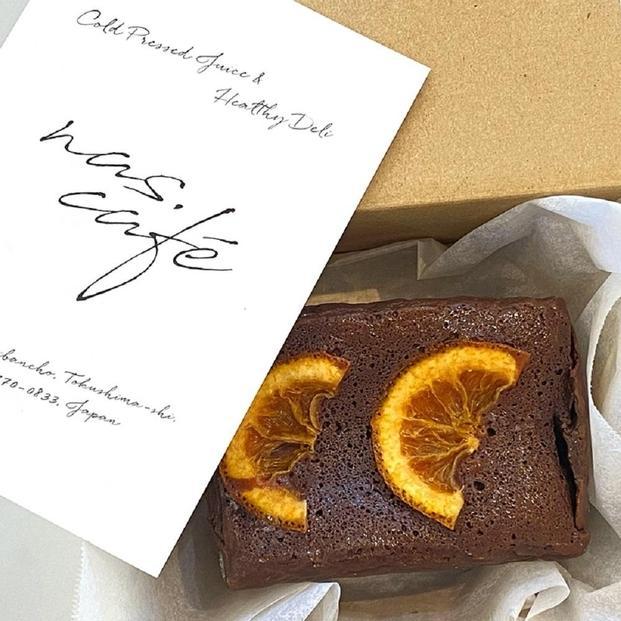 Cold Pressed Juice &
Healthy Deli
nas.
café
bancho, Tokushima-shi,
770-0833, Japan